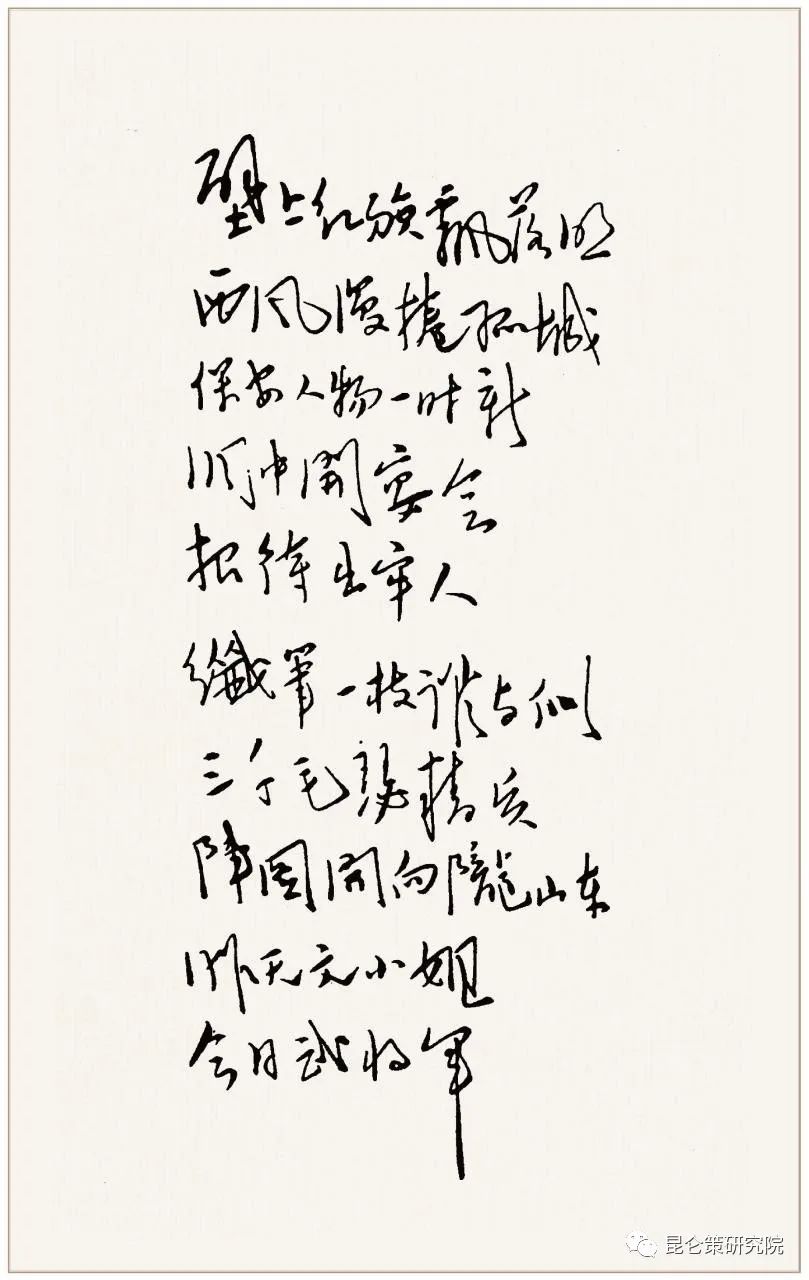 壁上红旗飘落照
西风漫捲孤城
保安人物一时新
洞中開宴会
招待出牢人
纖筆一枝誰与似
三千毛瑟精兵
陣图開向隴山东
昨天文小姐
今日武将军
昆仑策研究院